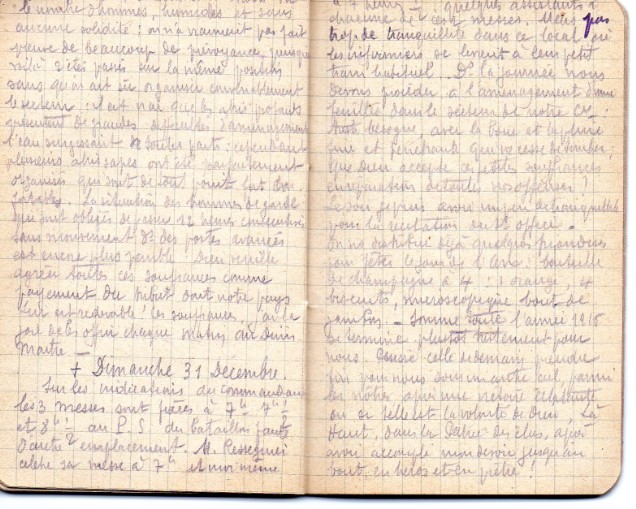 le nombre d'hommes, humides et sans
aucune solidité : on n'a vraiment pas fait
preuve de beaucoup de prévoyance puisque
voilà 2 étés passés sur la même position
sans qu'on ait su organiser convenablement
le secteur : il est vrai que les abris profonds
présentent de grandes difficultés d'aménagement
l'eau surgissant de toutes parts, cependant
plusieurs abris sapes ont été parfaitement
organisés qui sont de tout point
La situation des hommes de garde
qui sont obligés de passer 12 heures consécutives
sans mouvement ds des postes avancés
est encore plus pénible. Dieu veuille
agréer toutes ces souffrances comme
payement du tribut dont notre pays
leur est redevable ! Ces souffrances, j'ai la
joie de les offrir chaque matin au divin
Maître —
+ Dimanche 31 Décembre.
Sur les indications du commandant
les 3 messes sont fixées à 7h 7h ½
et 8h ½ au P.S. du bataillon faute
d'autre emplacement. M.
célèbre sa messe à 7h et moi-même
à 7 heures ½ quelques assistants à
chacune de ces messes. Mais pas
trop de tranquillité dans ce local où
les infirmiers se lèvent à leur petit
train habituel. Ds la journée nous
devons procéder à l'aménagement d'une
feuillée dans le secteur de notre Cie
besogne, avec la boue et la pluie
fine et pénétrante qui ne cesse de tomber,
que Dieu accepte ces petites souffrances
en réparation de toutes nos offenses !
Le soir je puis avoir un peu de tranquillité
pour la récitation du St office —
On va distribuer déjà quelques provisions
pour fêter le jour de l'an : bouteille
de champagne à 4 : 1 orange, 4
biscuits, microscopique bout de
jambon. — Somme toute l'année 1916
se termine plutôt tristement pour
nous. Puisse celle de demain prendre
fin pour nous sous un autre ciel, parmi
les nôtres après une victoire éclatante
ou si telle est la volonté de Dieu, Là
Haut, dans la Patrie des élus, après
avoir accompli mon devoir jusqu'au
bout, en héros et en prêtre !